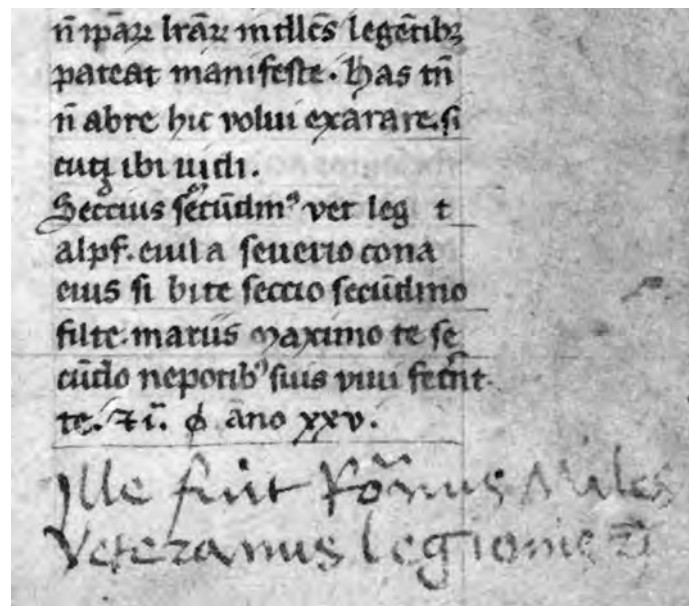 n̄ ip̄aꝝ lr̄aꝝ intllc̄s legētibꝫ
pateat manifeste. has tn̄
n̄ abre hic volui exarare. si
cutꝗ ibi uidi.
Seccius secūdmꝰ vet leg t
alpf. eiul a seuerio cona
eius si bite seccio secūdmo
filte. marꝰis maximo te se
cūdo nepotibꝰ suis viui fecer̄t
te. ⁊ ī. ꝯ āno xxv.
Ille fuit Ro̅nus Miles
Veteranus legionis